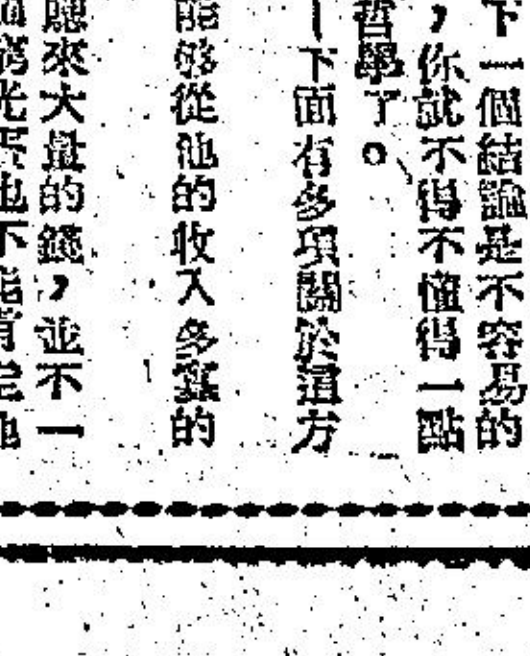 下一個結論是不容易的
，你就不得不懂得一點
哲學了。
下面有多項關於這方
能够從他的收入多寡的
應來大量的錢，並不一